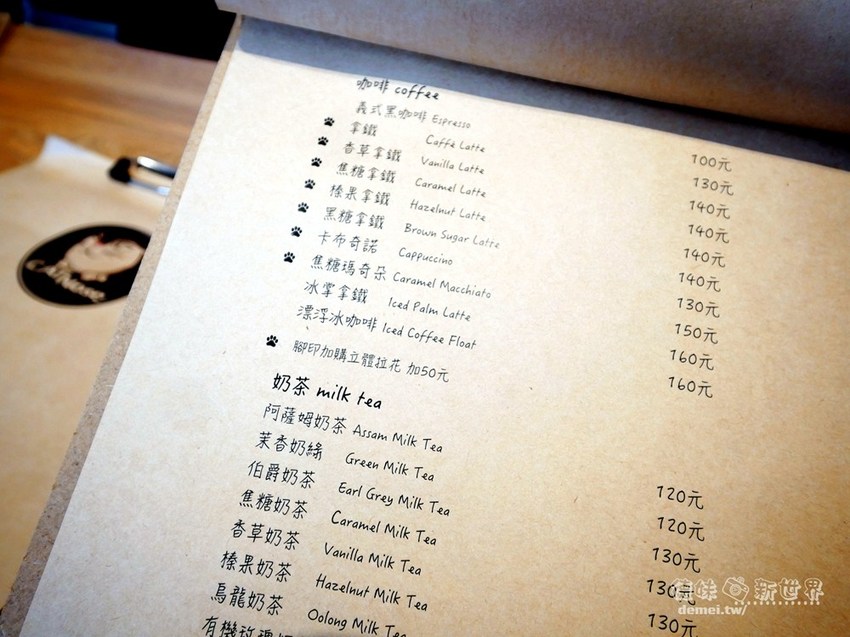 咖啡 coffee
義式黑咖啡 Espresso 100元
拿鐵 Caffè Latte 130元
香草拿鐵 Vanilla Latte 140元
焦糖拿鐵 Caramel Latte 140元
榛果拿鐵 Hazelnut Latte 140元
黑糖拿鐵 Brown Sugar Latte 140元
卡布奇諾 Cappuccino 130元
焦糖瑪奇朵 Caramel Macchiato 150元
冰掌拿鐵 Iced Palm Latte 160元
漂浮冰咖啡 Iced Coffee Float 160元
腳印加購立體拉花 加50元
奶茶 milk tea
阿薩姆奶茶 Assam Milk Tea 120元
茉香奶綠 Green Milk Tea 120元
伯爵奶茶 Earl Grey Milk Tea 130元
焦糖奶茶 Caramel Milk Tea 130元
香草奶茶 Vanilla Milk Tea 130元
榛果奶茶 Hazelnut Milk Tea
烏龍奶茶 Oolong Milk Tea
有機玫瑰奶
新世界
demei.tw/